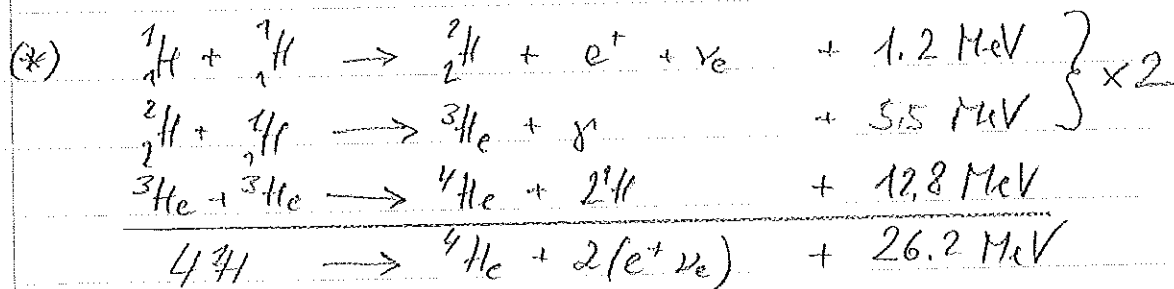 (*) ¹₁H + ¹₁H → ²₂H + e⁺ + νₑ + 1.2 MeV } ×2
²₂H + ¹₁H → ³He + γ + 5.5 MeV
³He + ³He → ⁴He + 2¹H + 12,8 MeV
4¹H → ⁴He + 2(e⁺ νₑ) + 26.2 MeV